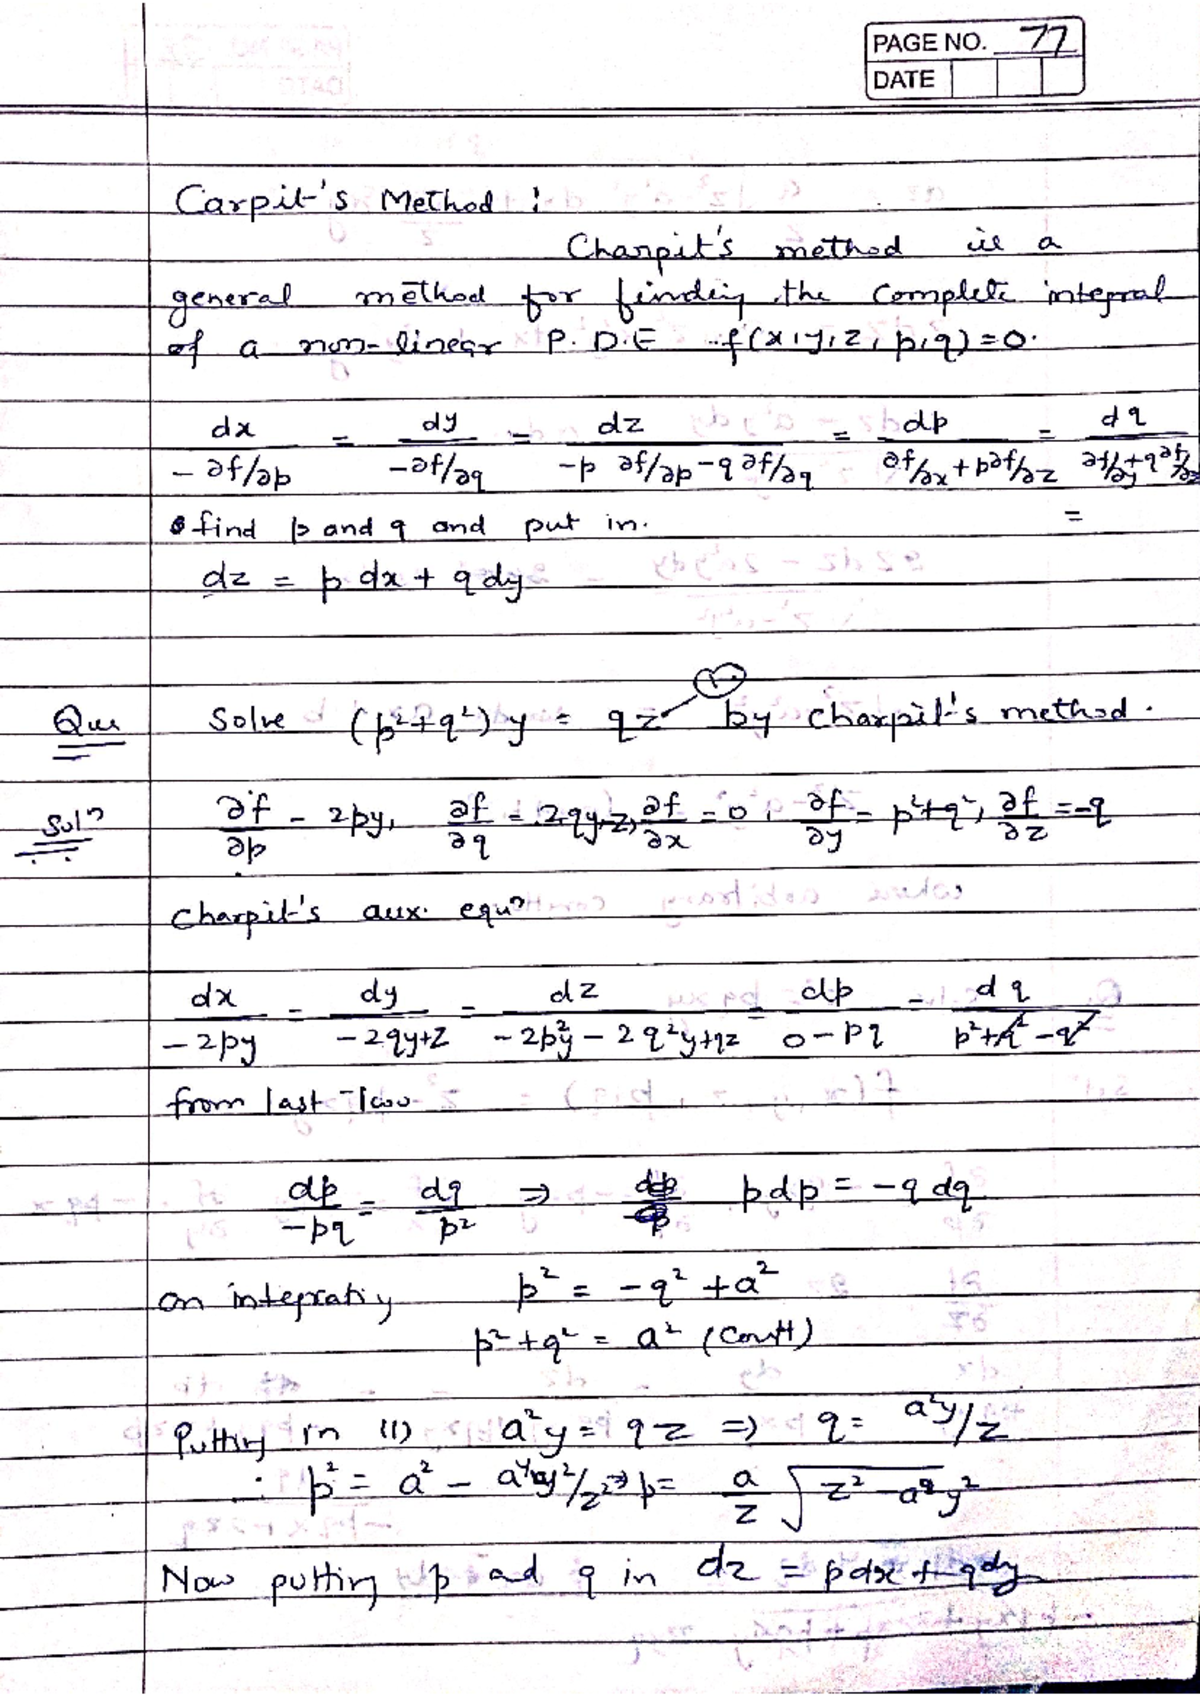 PAGE NO. 77
DATE
Carpit's Method :
Charpit's method is a
general method for finding the complete integral
of a non-linear P.D.E f(x,y,z,p,q)=0.
dx/(-∂f/∂p) = dy/(-∂f/∂q) = dz/(-p ∂f/∂p - q ∂f/∂q) = dp/(∂f/∂x + p∂f/∂z) = dq/(∂f/∂y + q∂f/∂z)
find p and q and put in. =
dz = p dx + q dy
Que Solve (p²+q²) y = qz by Charpit's method.
Solⁿ ∂f/∂p = 2py, ∂f/∂q = 2qy-z, ∂f/∂x = 0, ∂f/∂y = p²+q², ∂f/∂z = -q
Charpit's aux. equⁿ
dx/(-2py) = dy/(-2qy+z) = dz/(-2p²y - 2q²y+qz) = dp/(0-pq) = dq/(p²+q²-q²)
from last Two
dp/(-pq) = dq/p² ⇒ pdp = -q dq
on integratiy p² = -q² + a²
p² + q² = a² (Constt)
Putting in (1) a²y = qz ⇒ q = a²y/z
∴ p² = a² - a⁴y²/z² ⇒ p = a/z √(z² - a²y²)
Now putting p and q in dz = pdx + qdy